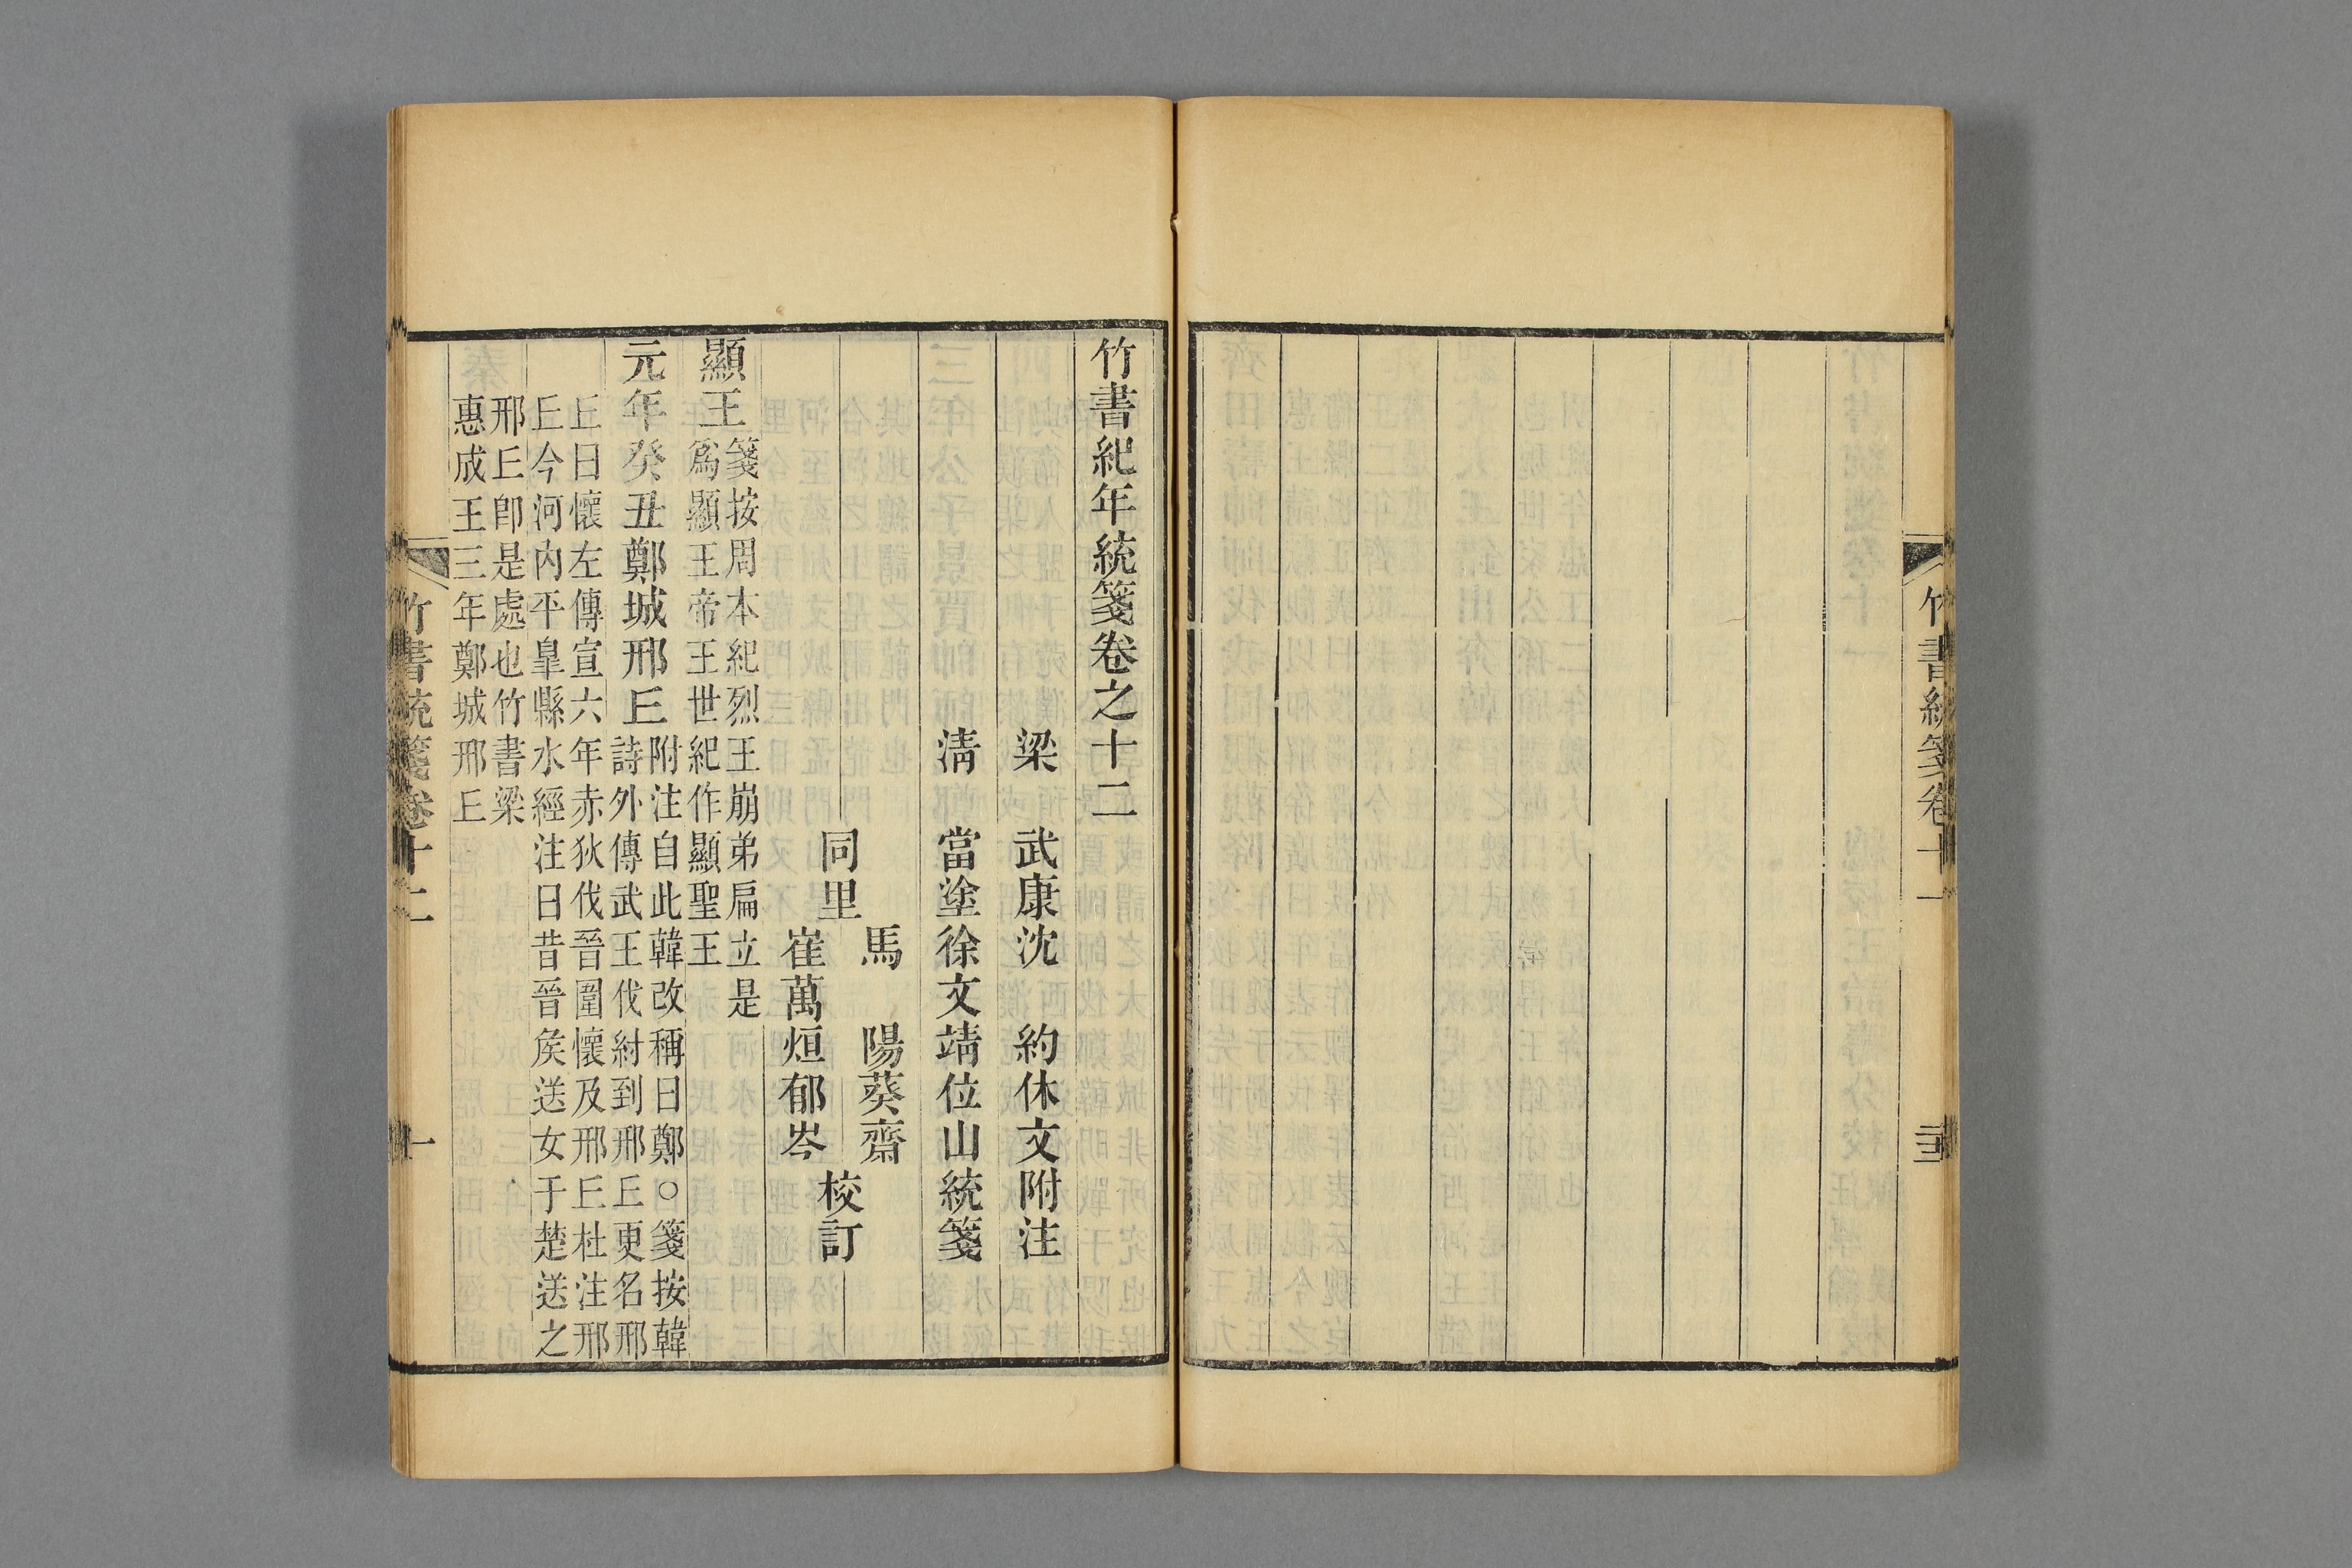 竹書統箋卷十一
三十三
竹書紀年統箋卷之十二
梁 武康沈 約休文附注
清 當塗徐文靖位山統箋
馬 陽葵齋
同里 校訂
崔萬烜郁岑
顯王
箋按周本紀烈王崩弟扁立是
爲顯王帝王世紀作顯聖王
元年癸丑鄭城邢丘
附注自此韓改稱曰鄭○箋按韓
詩外傳武王伐紂到邢丘更名邢
丘曰懷左傳宣六年赤狄伐晉圍懷及邢丘杜注邢
丘今河內平皐縣水經注曰昔晉侯送女于楚送之
邢丘卽是處也竹書梁
惠成王三年鄭城邢丘
竹書統箋卷十二
一